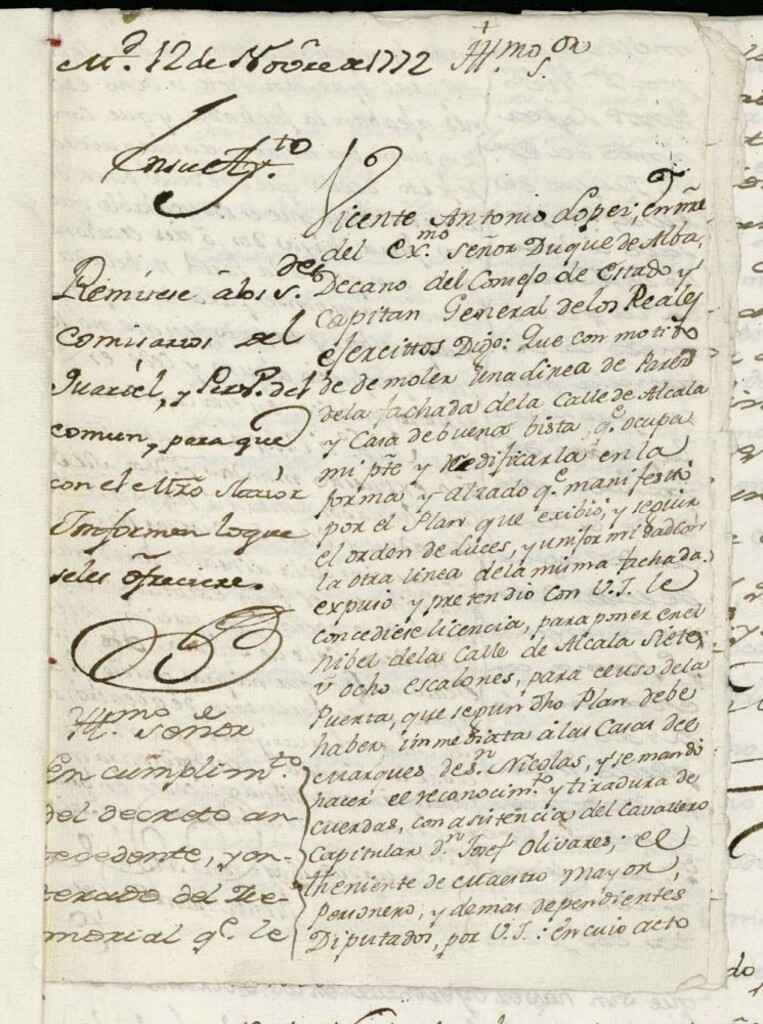 M.ᵈ 12 de Nov̄re de 1772
Ill.mo S.or
En su Ay.to
Remitese â los S.res
Comisarios del
Quartel, y Per.P. del
comun, para que
con el Mr̃o Maior
Informen lo que
se les ofreciere.
Ill.mo Señor
En cumplim.to
del decreto an-
tecedente, y en-
terado del Me-
morial q.e le
Vicente Antonio Lopez, en nr̃e
del Ex.mo Señor Duque de Alba,
Decano del Consejo de Estado y
Capitan General de los Reales
ejercittos Digo: Que con motibo
de demoler una Linea de Pared
de la fachada de la Calle de Alcala
y Casa de buena bista, q.e ocupa
mi pt̃e y reedificarla en la
forma y alzado q.e manifestó
por el Plan que exibió, y seguir
el orden de luces, y uniformidad con
la otra linea de la misma fachada.
expuso y pretendio con V.I. le
concediese licencia, para poner en el
nibel de la Calle de Alcala siete,
ù ocho escalones, para el uso de la
Puerta, que segun dho Plan debe
haber immediata à las Casas del
Marques de S.n Nicolas, y se mandó
hacer el reconocim.to y tiradura de
cuerdas, con asistencia del Cavallero
Capitular d.n Josef Olivares; el
theniente de Maestro mayor,
Personero, y demas dependientes
Diputados, por V.I.: en cuio acto